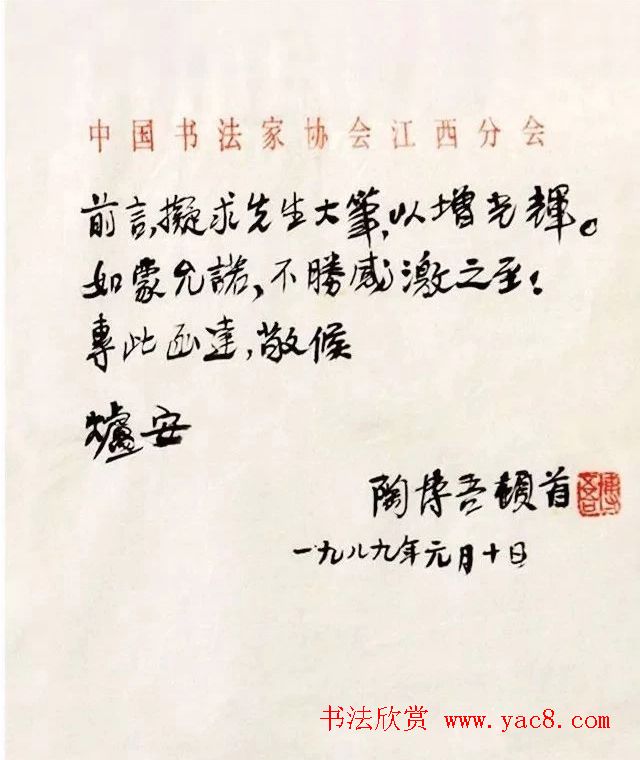 中国书法家协会江西分会
前言,擬求先生大筆,以增光輝。
如蒙允諾,不勝感激之至!
專此函達,敬候
爐安
陶博吾頓首
博吾
一九八九年元月十日
书法欣赏 www.yac8.com